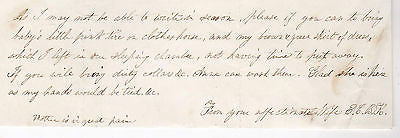 As I may not be able to write in season, please if you can to bring
baby's little pink tire on clotheshorse, and my brown & skirt of dress,
which I left in our sleeping chamber, not having time to put away.
If you will bring duty collars &c. can wash them. Glad she is here
as my hands would be tired &c.
From your affectionate Wife
Mother is in great pain